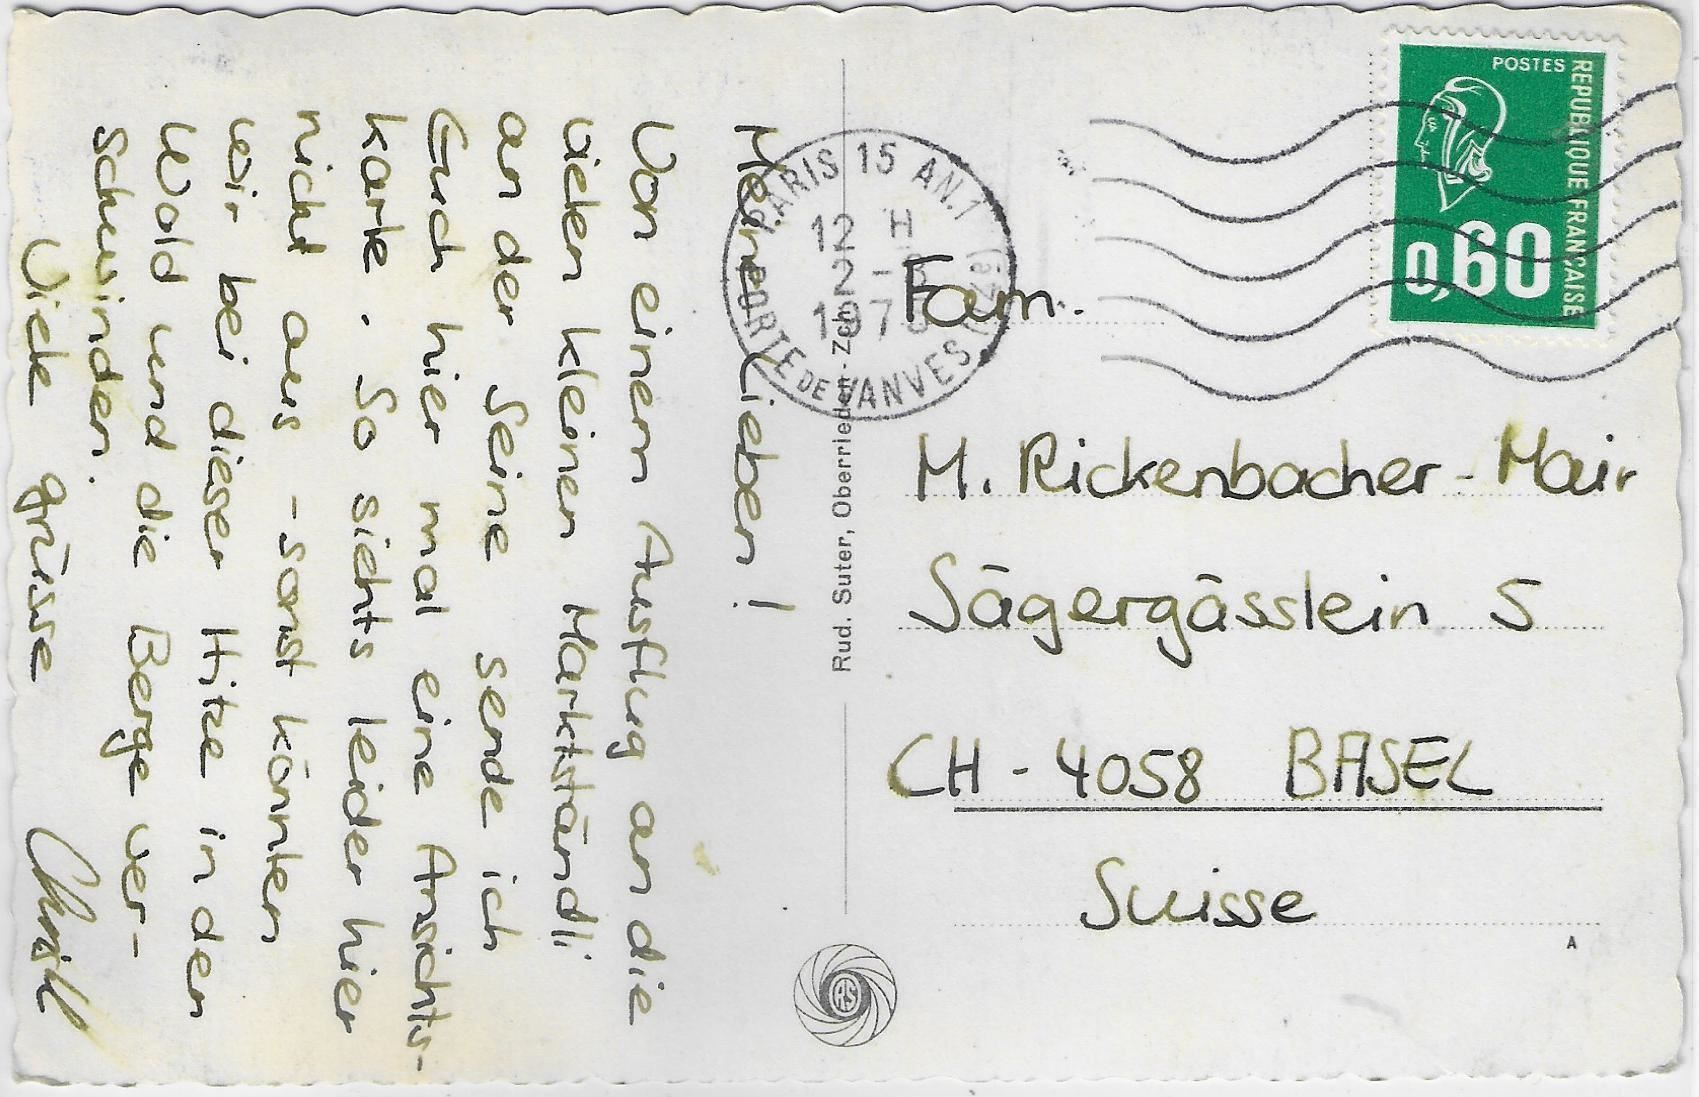 Meine Lieben!
Von einem Ausflug an die
vielen kleinen Marktständli
an der Seine sende ich
Euch hier mal eine Ansichts-
karte. So siehts leider hier
nicht aus - sonst könnten
wir bei dieser Hitze in den
Wald und die Berge ver-
schwinden.
Viele grüsse
Rud. Suter, Oberrieden-Zch.
PARIS 15 AN.1
12 H
2 -
PORTE DE VANVES
POSTES
REPUBLIQUE FRANÇAISE
0,60
Fam.
M. Rickenbacher-Mair
Sägergässlein 5
CH-4058 BASEL
Suisse
A
RS